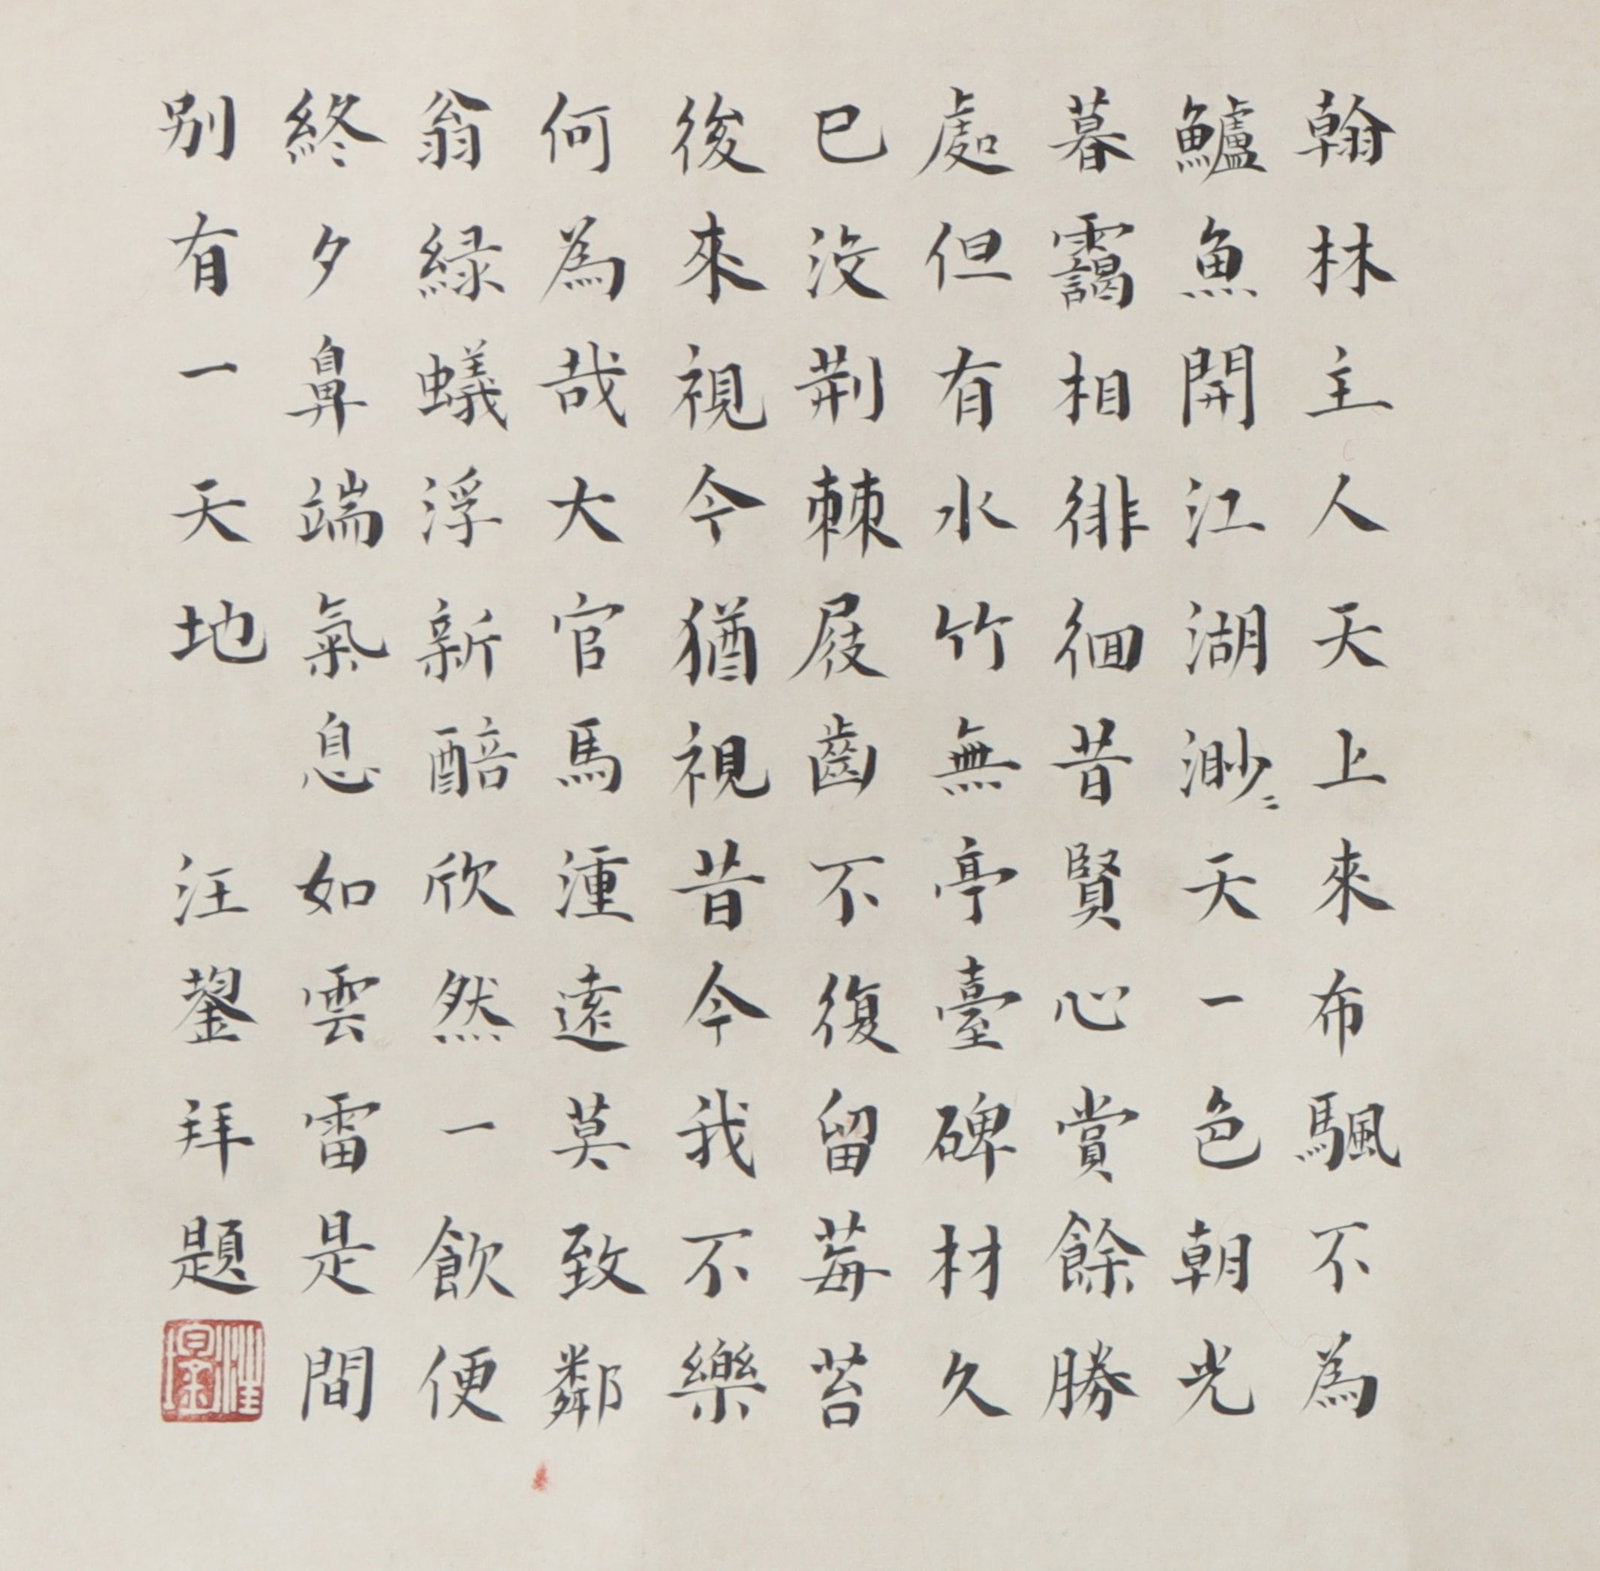 翰林主人天上來布颿不為
鱸魚開江湖渺〻天一色朝光
暮靄相徘徊昔賢心賞餘勝
處但有水竹無亭臺碑材久
已沒荆棘屐齒不復留莓苔
後來視今猶視昔今我不樂
何為哉大官馬湩遠莫致鄰
翁綠蟻浮新醅欣然一飲便
終夕鼻端氣息如雲雷是間
別有一天地 汪鋆拜題
汪鋆